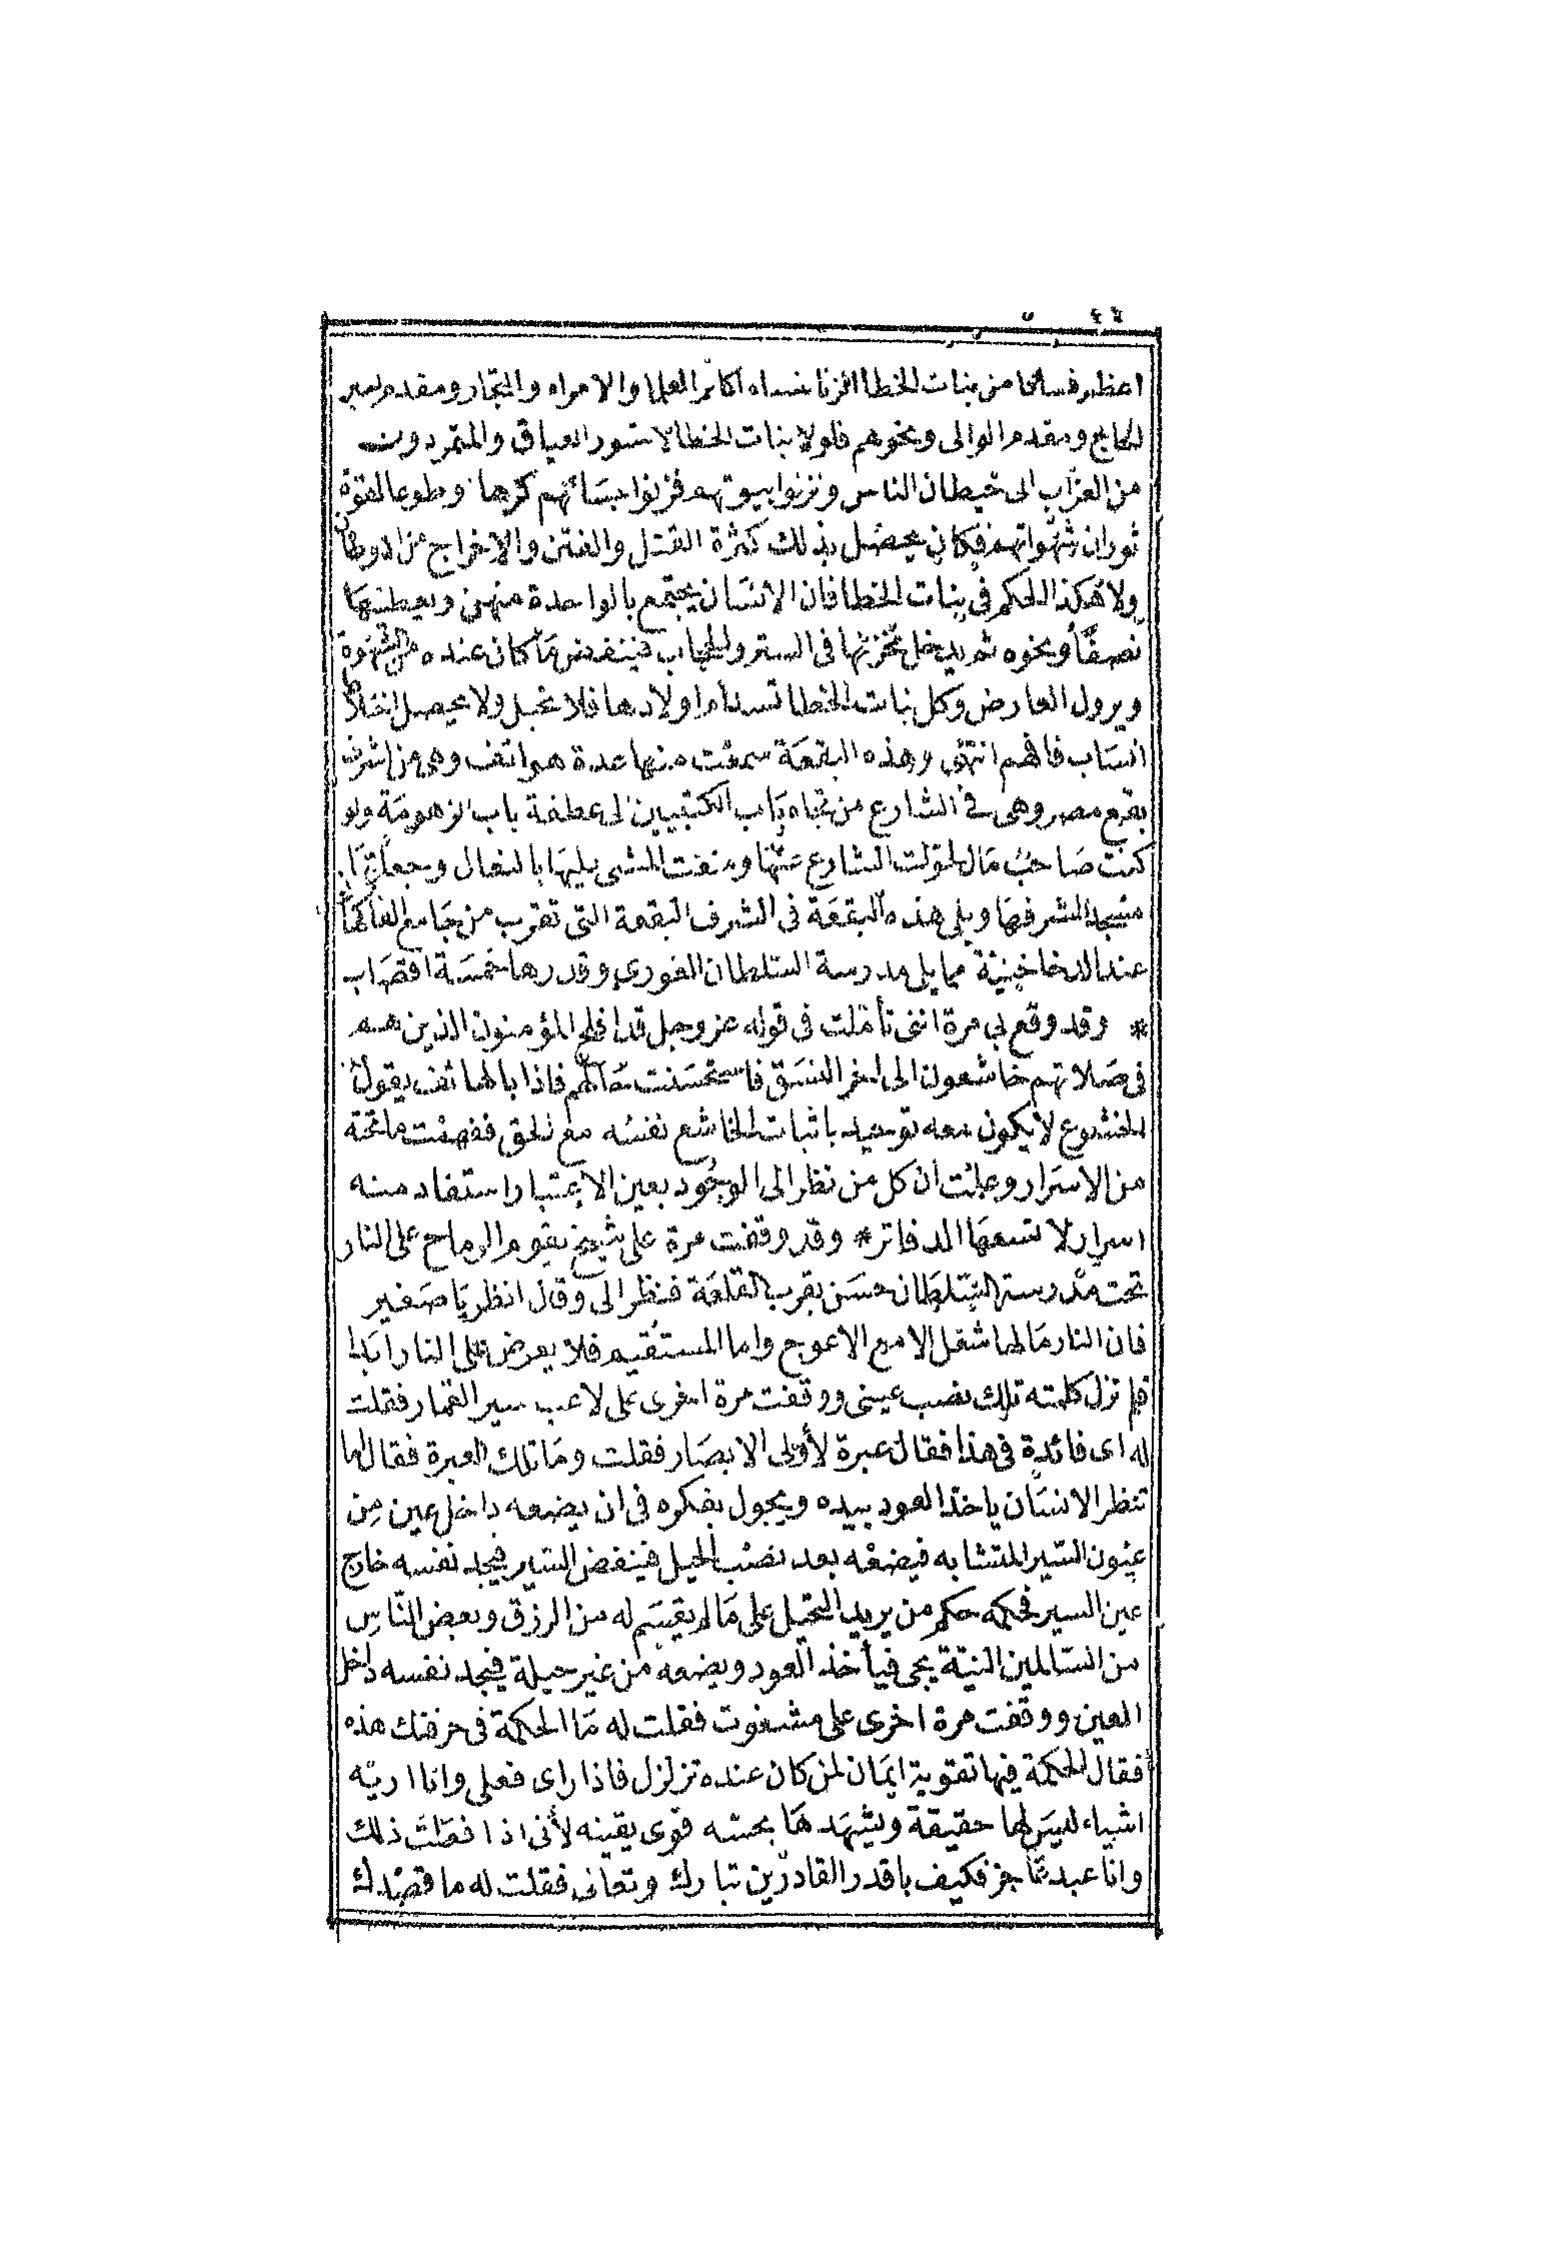 اعظم فسادا من بنات الخطا الزنا بنساء اكابر العلما والامراء والتجار ومقدم
ومقدم الوالى ونحوهم فلولا بنات الخطا لا تسور العياق والمتمردون
من العزاب الى حيطان الناس ونزلوا بيوتهم فزنوا بنسائهم كرها وطوعا لقوة
ثوران شهواتهم فكان يحصل بذلك كثرة القتل والفتن والاخراج من الاوطان
ولا هكذا الحكم فى بنات الخطا فان الانسان يجتمع بالواحدة منهن ويعطيها
نصفا ونحوه ثم يدخل مخزنها فى الستر والحجاب فينفض ما كان عنده من الشهوة
ويزول العارض وكل بنات الخطا اولادها فلا تحبل ولا يحصل اختلاط
انساب فافهم انتهى وهذه البقعة سمعت منها عدة هواتف وهى من اشرف
بقع مصر وهى فى الشارع من تجاه باب الكتبيين الى عطفة باب الزهومة ولو
كنت صاحب مال لحولت الشارع عنها ومنعت المشى عليها بالنعال وجعلتها
مسجدا لشرفها ويلى هذه البقعة فى الشرف البقعة التى تقرب من جامع الفاكها
عند مما يلى مدرسة السلطان الغورى وقدرها خمسة اقصاب
* وقد وقع لى مرة اننى تأملت فى قوله عز وجل قد افلح المؤمنون الذين هم
فى صلاتهم خاشعون الى اخر النسق فاستحسنت حالهم فاذا بالهاتف يقول
الخشوع لا يكون معه توحيد باثبات الخاشع نفسه مع الحق ففهمت ما تحته
من الاسرار وعلمت ان كل من نظر الى الوجود بعين الاعتبار استفاد منه
اسرار لا تسعها الدفاتر * وقد وقفت مرة على شيخ يقوم الرماح على النار
تحت مدرسة السلطان حسن بقرب القلعة فنظر الى وقال انظر يا صغير
فان النار ما لها شغل الا مع الاعوج واما المستقيم فلا يعرض على النار ابدا
فلم تزل كلمته تلك نصب عينى ووقفت مرة اخرى على لاعب سير القمار فقلت
له اى فائدة فى هذا فقال عبرة لأولى الابصار فقلت وما تلك العبرة فقال اما
تنظر الانسان ياخذ العود بيده ويجول بفكره فى ان يضعه داخل عين مِن
عيون السير المتشابه فيضعه بعد نصب الحيل فينفض السير فيجد نفسه خارج
عين السير فحكمه حكم من يريد التحيل على ما لم يقسم له من الرزق وبعض النّاسِ
من السّالمين النيّة يجى فيأخذ العود ويضعه من غير حيلة فيجد نفسه داخل
العين ووقفت مرة اخرى على مشعوت فقلت له ما الحكمة فى حرفتك هذه
فقال الحكمة فيها تقوية ايمان لمن كان عنده تزلزل فاذا راى فعلى وانا اريه
اشياء ليس لها حقيقة ويشهدها بحسّه قوى يقينه لأنى اذا فعلت ذلك
وانا عبد عاجز فكيف باقدر القادرين تبارك وتعالى فقلت له ما قصدك